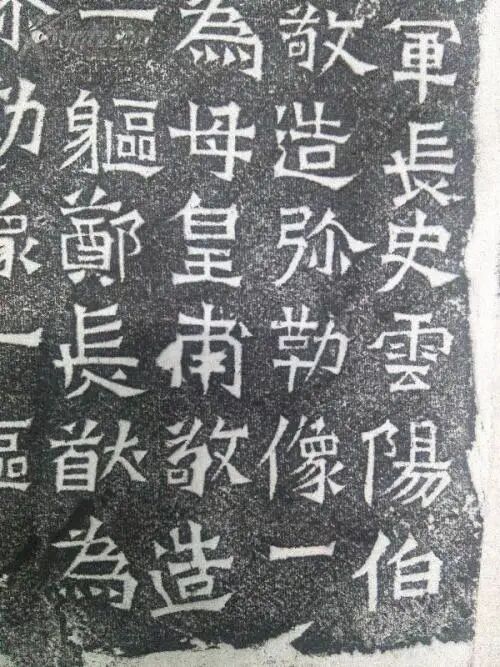 軍長史雲陽伯
敬造弥勒像一
為母皇甫敬造
一軀鄭長猷為
弥勒像一軀